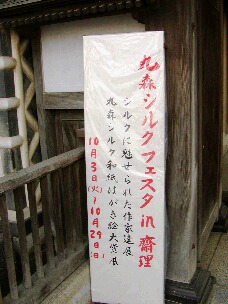 丸森シルクフェスタ in 齋理
シルクに魅せられた作家達展
丸森シルク和紙はがき絵大賞展
10月3日(火)〜10月29日(日)